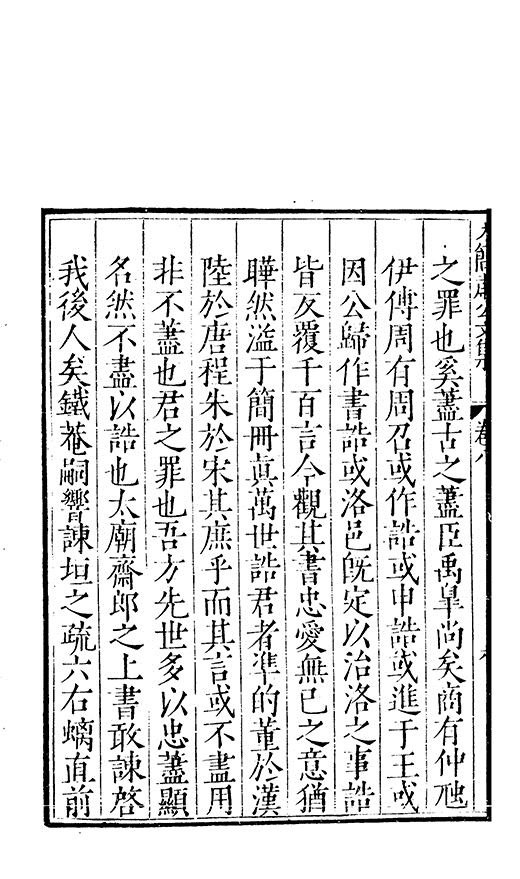 之罪也奚藎古之藎臣禹臯尚矣商有仲虺
伊傅周有周召或作誥或申誥或進于王或
因公歸作書誥或洛邑旣定以治洛之事誥
皆反覆千百言今觀其書忠愛無已之意猶
曄然溢于簡冊眞萬世誥君者凖的董於漢
陸於唐程朱於宋其庶乎而其言或不盡用
非不藎也君之罪也吾方先世多以忠藎顯
名然不盡以誥也太廟齋郎之上書敢諫啓
我後人矣鐵菴嗣響諫垣之疏六右螭直前